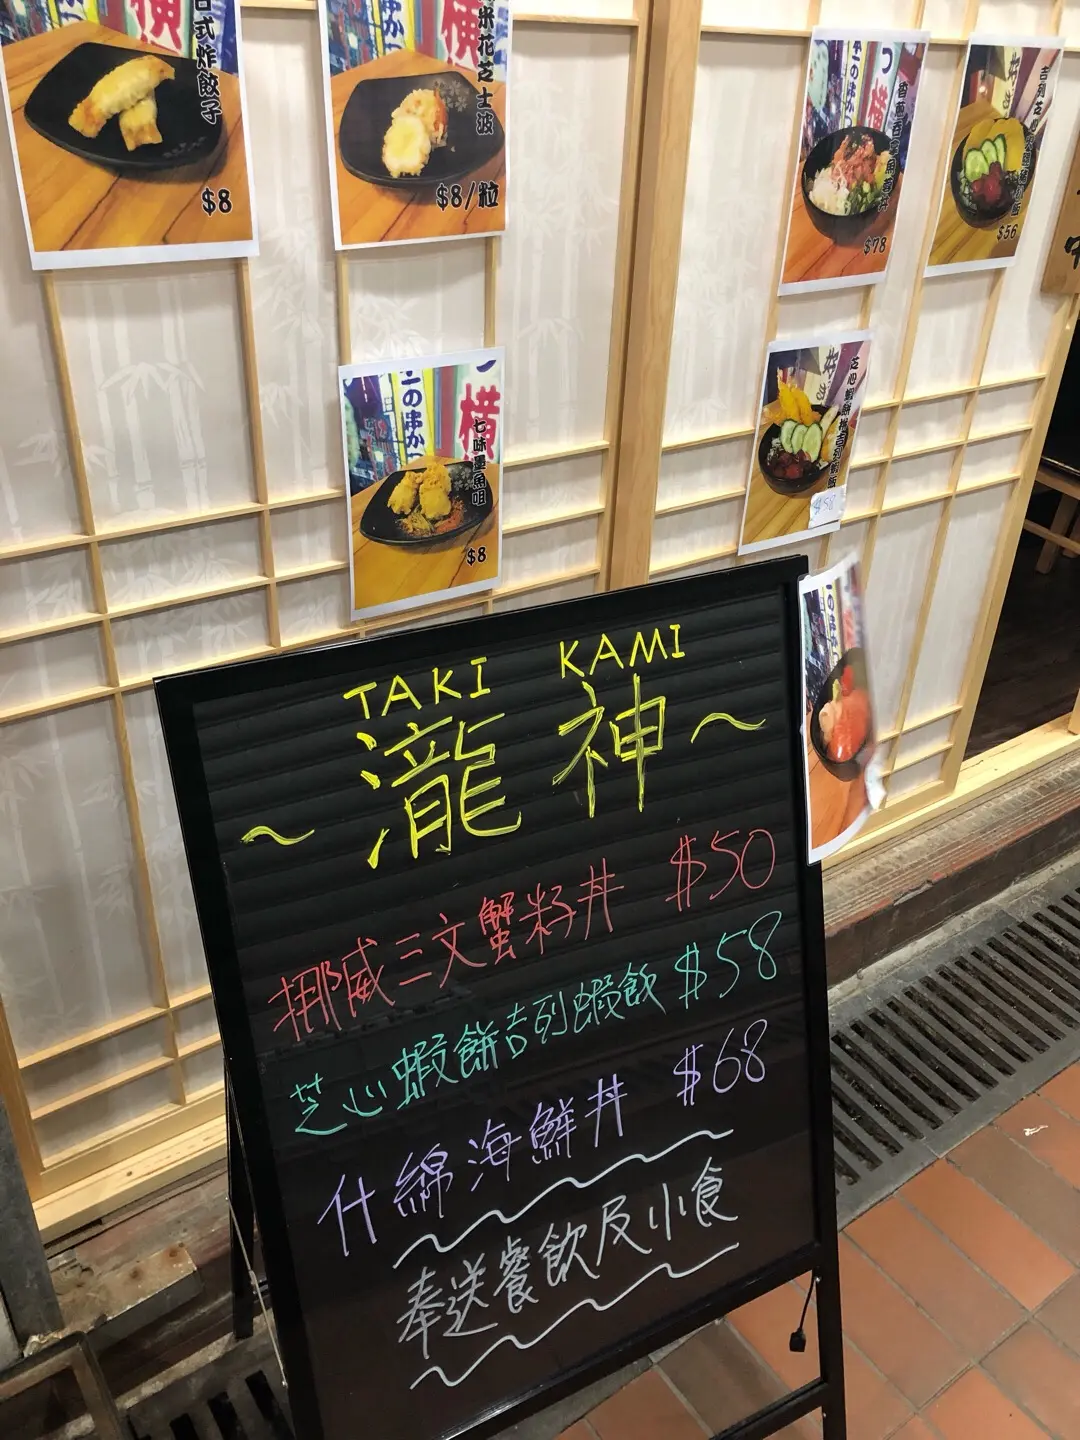 日式炸餃子
$8
横
米花芝士波
$8/粒
$78
$56
二の串かつ
横
七味墨魚咀
$8
芝心蝦餅拼吉列蝦飯
$58
TAKI KAMI
~瀧神~
挪威三文蟹籽丼 $50
芝心蝦餅吉列蝦飯 $58
什錦海鮮丼 $68
奉送餐飲及小食